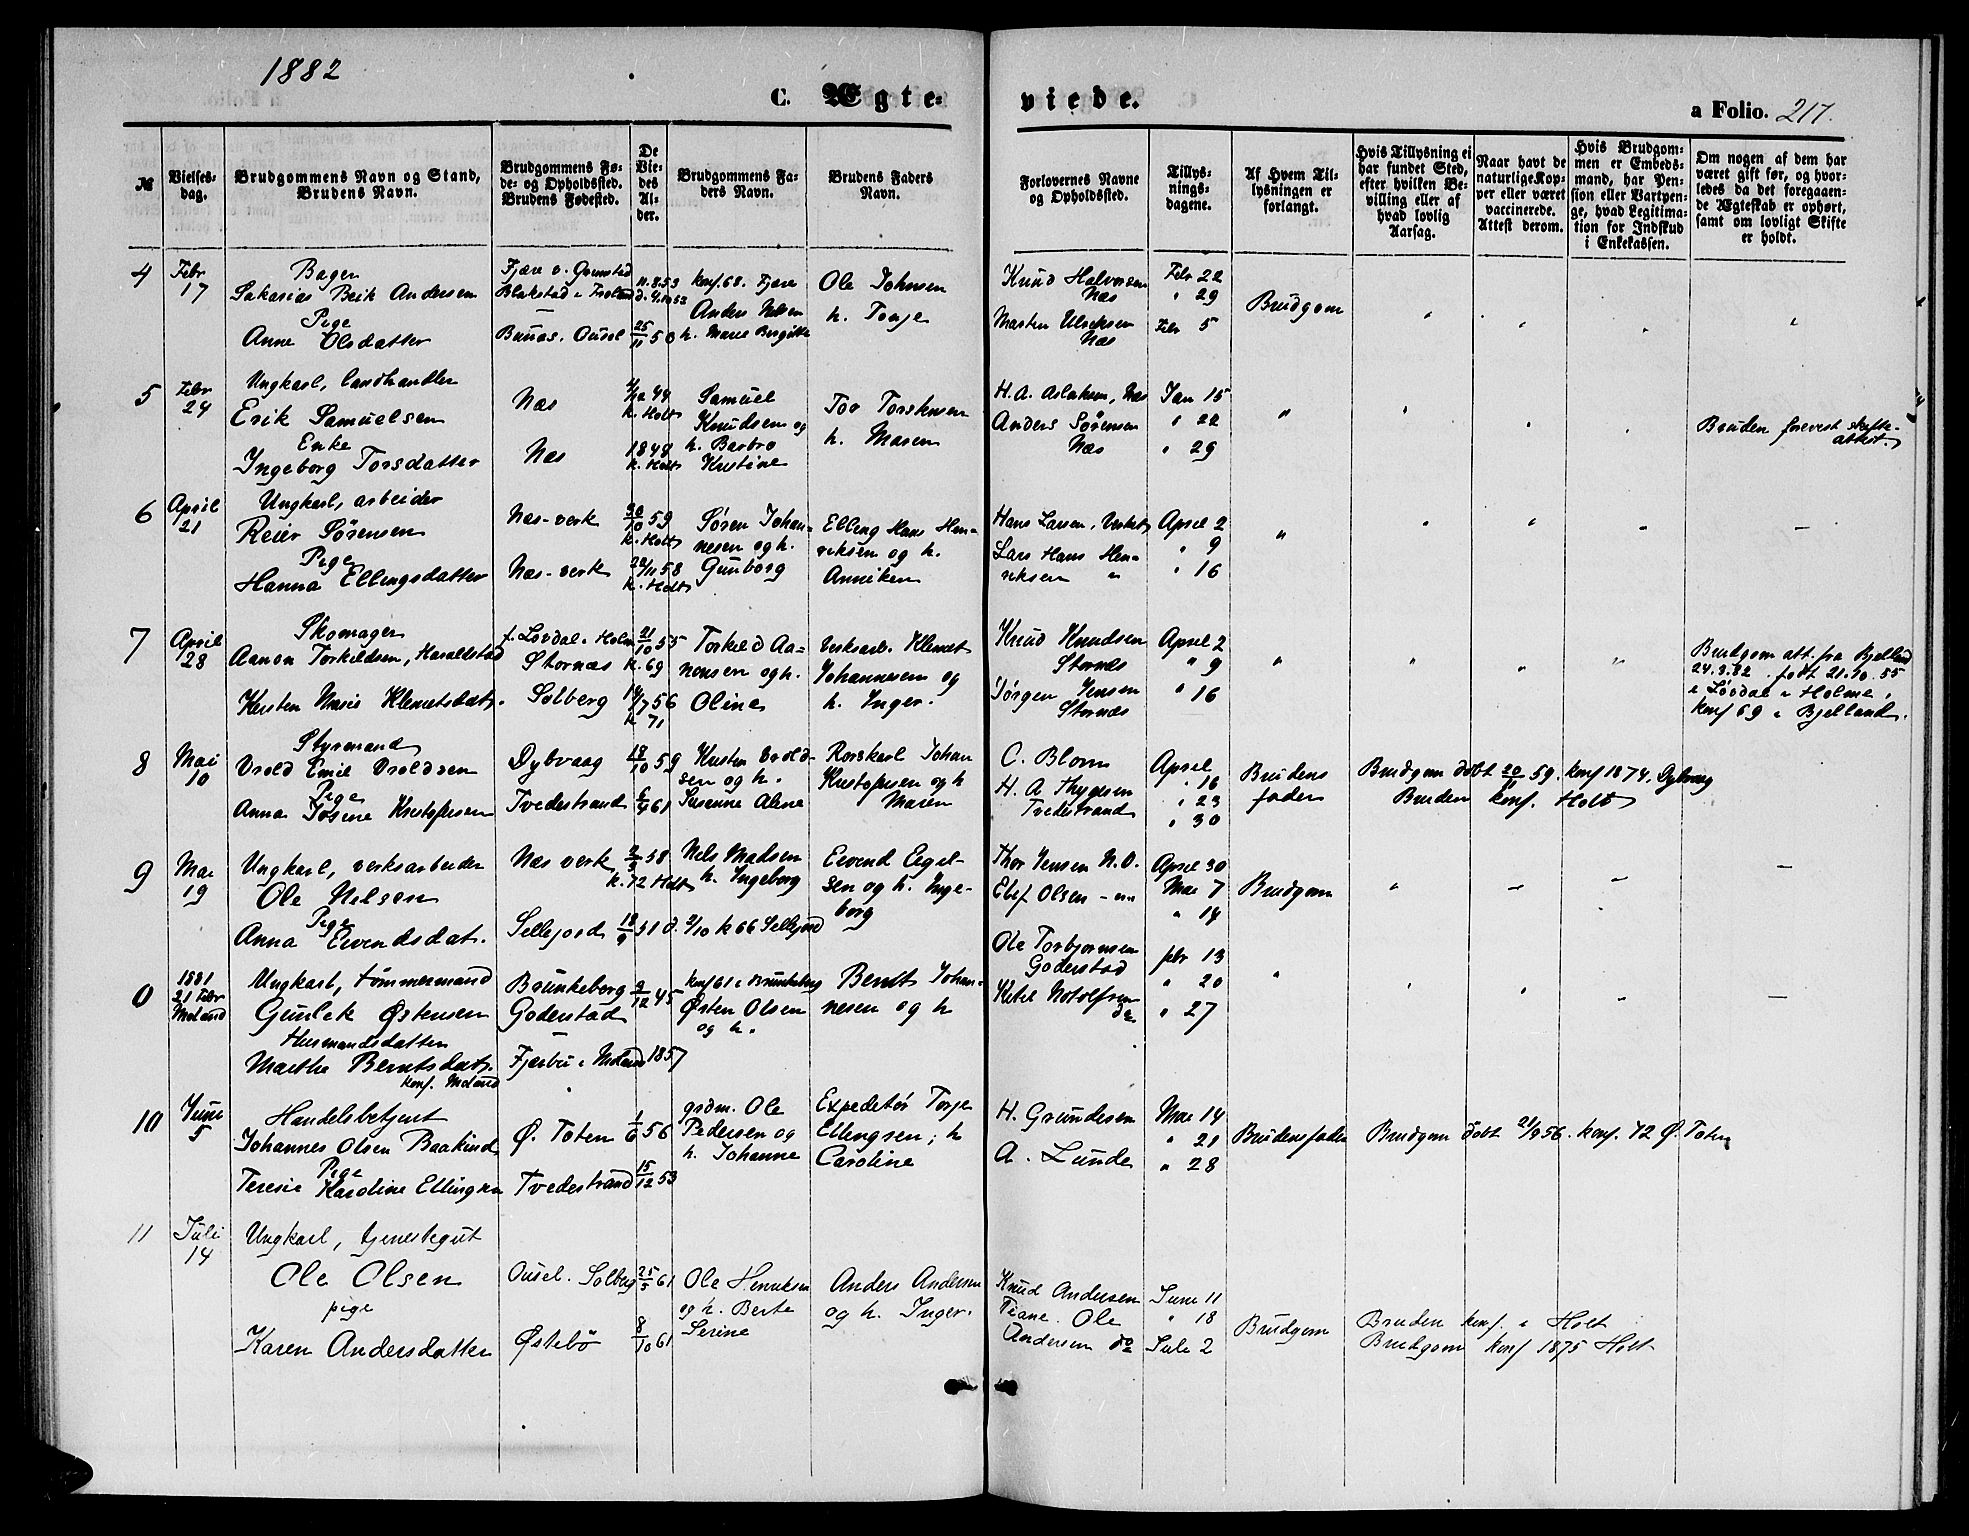 1882
C. Ægte-
viede.
a Folio. 217.
№
Vielses-
dag.
Brudgommens Navn og Stand,
Brudens Navn.
Brudgommens Fø-
de- og Opholdssted.
Brudens Fødested.
De
Vie-
des
Al-
der.
Brudgommens Fa-
ders Navn.
Brudens Faders
Navn.
Forlovernes Navne
og Opholdssted.
Tillys-
nings-
dagene.
Af Hvem Til-
lysningen er
forlangt.
Hvis Tillysning ei
har fundet Sted,
efter hvilken Be-
villing eller af
hvad lovlig
Aarsag.
Naar havt de
naturlige Kop-
per eller været
vaccinerede.
Attest derom.
Hvis Brudgom-
men er Embeds-
mand, har Pen-
sion eller Vartpen-
ge, hvad Legitima-
tion for Indskud
i Enkekassen.
Om nogen af dem har
været gift før, og hvor-
ledes da det foregaaen-
de Ægteskab er ophørt,
samt om lovligt Skifte
er holdt.
4
Febr
17
Bager
Sakarias Beik Andersen
Pige
Anne Olsdatter
Fjære v. Grimstad
Blakstad i Froland
11.8.53
25/11 50
konf. 68. Fjære
Anders Nelsen
h. Marie Birgitte
Ole Johnsen
h. Tonje
Knud Halvorsen
Næs
Marten Ulriksen
Næs
Febr 22
" 29
Febr 5
Brudgom
5
Febr
24
Ungkarl, landhandler
Erik Samuelsen
Enke
Ingeborg Torsdatter
Næs
Næs
k. Holt
1848
k. Holt
Samuel
Knudsen og
h. Barbro
Kristine
Tov Torstensen
h. Maren
H. A. Aslaksen, Næs
Anders Sørensen
Næs
Jan 15
" 22
" 29
"
Bruden forevist skifte-
attest.
6
April
21
Ungkarl, arbeider
Reier Sørensen
Pige
Hanna Ellingsdatter
Næs-verk
Næs-verk
30/10 59
k. Holt
22/11 58
k. Holt
Søren Johan-
nesen og h.
Gunborg
Elling Hans Hen-
riksen og h.
Anniken
Hans Larsen, Verket
Lars Hans Hen-
riksen "
April 2
" 9
" 16
"
7
April
28
Skomager
Aanon Torkildsen, Haraldstad
Kirsten Marie Klemetsdat.
f. Løvdal i Holme
Stornæs
Solberg
21/10 55
k. 69
14/7 56
k 71
Torkild Aa-
nonsen og h.
Oline
Verksarb. Klemet
Johannesen og
h. Inger.
Knud Knudsen
Stornæs
Jørgen Jensen
Stornæs
April 2
" 9
" 16
"
Brudgom att. fra Bjelland
24.3.82. født 21.10.55
i Løvdal i Holme,
konf 69 i Bjelland.
8
Mai
10
Styrmand
Vrold Emil Vroldsen
Pige
Anna Josine Kristofersen
Dybvaag
Tvedestrand
18/10 59
6/4 61
Kristen Vrold-
sen og h.
Susanne Aline
Rorskarl Johan
Kristofersen og h
Maren
C. Blom
H. A Thygesen
Tvedestrand
April
" 16
" 23
" 30
Brudens
fader
Brudgom døbt 20/11 59. konf 1874, Dybvag
Bruden konf. Holt
9
Mai
19
Ungkarl, verksarbeider
Ole Nelsen
Pige
Anna Eivendsdat.
Næs verk
Sellejord
2/3 58
k. 72 Holt
18/9 51 d. 2/10 k 66 Sellejord
Nels Madsen
h. Ingeborg
Eivend Eigel-
sen og h. Inge-
borg
Thor Jensen N.V.
Elef Olsen - "
April 30
Mai 7
" 14
Brudgom
0
1881
21 Febr
Moland
Ungkarl, tømmermand
Gunlek Østensen
Husmandsdatter
Marthe Berntsdat.
konf. Moland
Brunkeberg
Goderstad
Fjærbu i Moland 1857
2/12 45
konf 61 i Brunkeberg
Østen Olsen
og h.
Bernt Johan-
nesen og h
Ole Torbjørnsen
Goderstad
Ketil Notolfsen
do
febr 13
" 20
" 27
"
10
Juni
5
Handelsbetjent
Johannes Olsen Baakind
Pige
Teresie Karoline Ellingsen
Ø. Toten
Tvedestrand
1/6 56
15/12 53
grdm. Ole
Pedersen og
h. Johanne
Expeditør Torje
Ellingsen; h
Caroline
H. Grundesen
A. Lunde
Mai 14
" 21
" 28
Brudens fader
Brudgom døbt 21/9 56. konf. 72 Ø. Toten
11
Juli
14
Ungkarl, tjenestegut
Ole Olsen
pige
Karen Andersdatter
Ousel. Solberg
Østebø
25/5 61
8/10 61
Ole Henriksen
og h. Berte
Serine
Anders Andersen
og h. Inger.
Knud Andersen
Fiane. Ole
Andersen do
Juni 11
" 18
Juli 2
Brudgom
Bruden konf. i Holt
Brudgom konf 1875 Holt